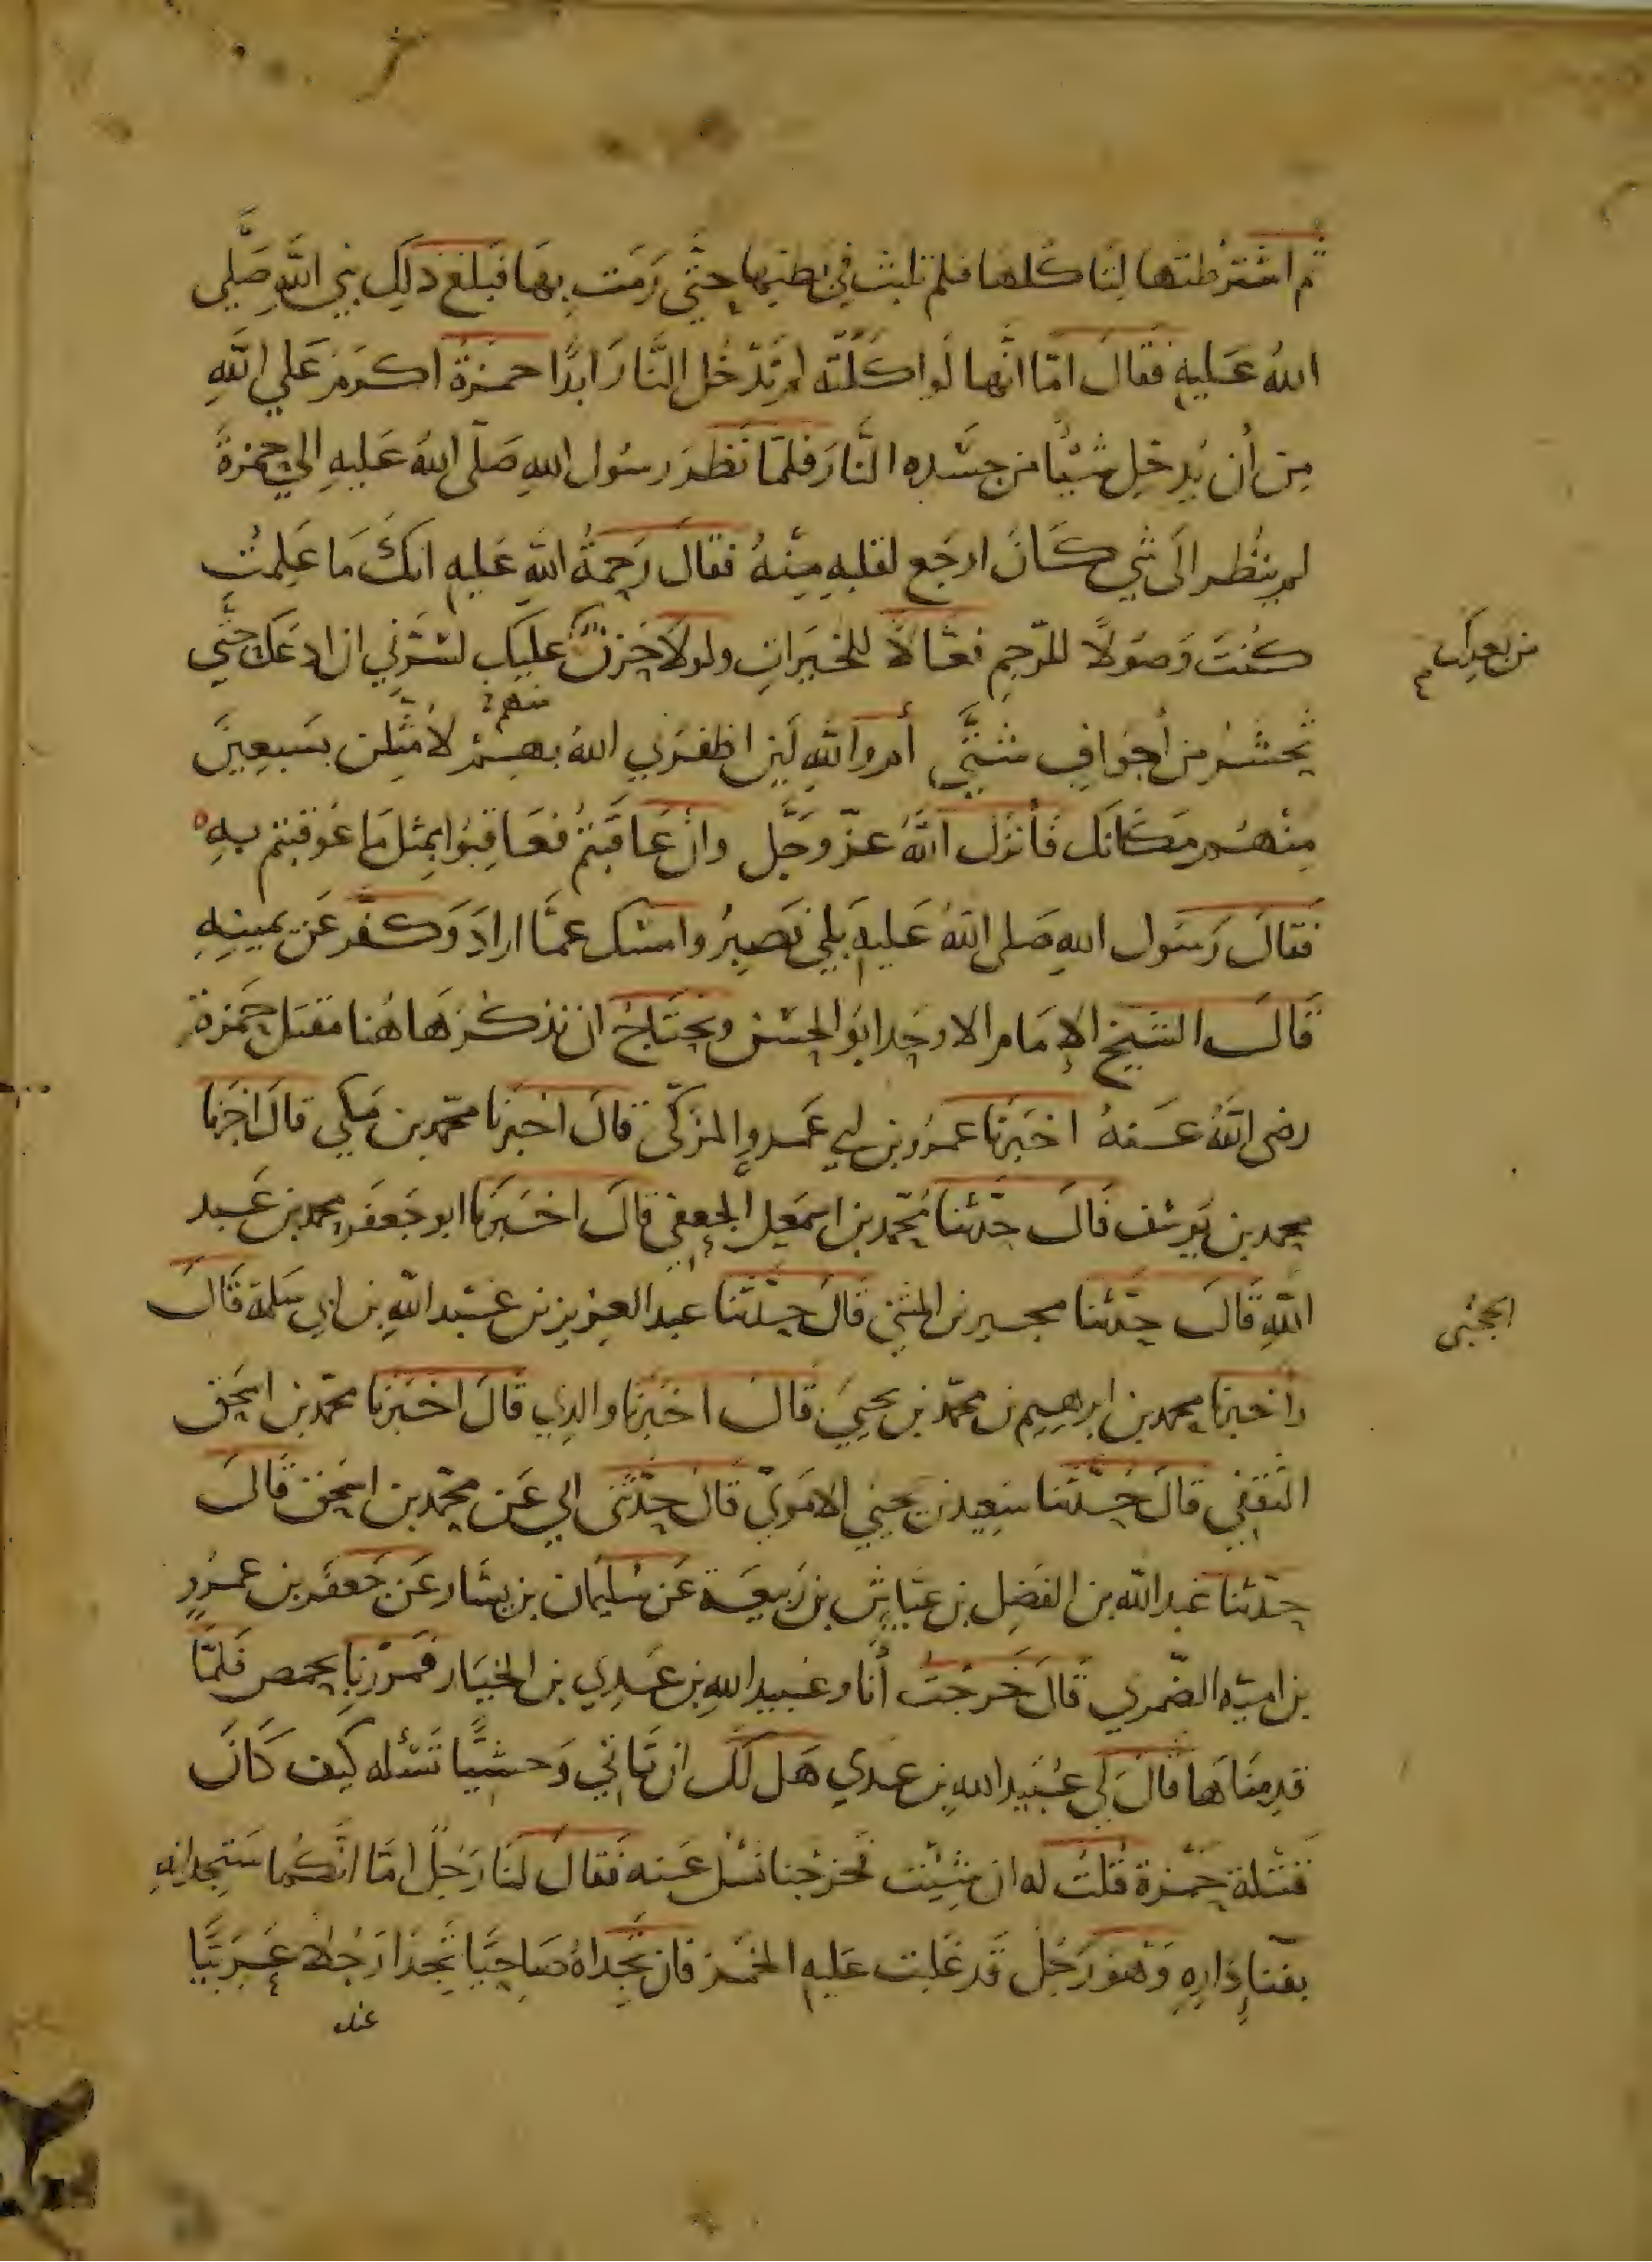 ثم اشترطتها لنا كلها فلم تلبث في بطنها حتَّى رَمَت بِهَا فبلغ ذلك نبي اللَّهِ صَلَّى
اللهُ عَليهِ فقالَ امّا انَّها لَو اكَلَتْه لم تَدْخُل النَّارَ ابدًا حمزَةُ اكرَمُ عَلي اللَّهِ
مِن أن يُدخِل شيْئًا من جسَدِه النَّارَ فلمّا نَظَرَ رسُول اللهِ صَلّى اللهُ عَليهِ الي حمزةَ
لم ينظُر الَى شي كَانَ اوجَع لقلبِهِ مِنْهُ فقالَ رَحمةُ اللهِ عَليهِ انكَ مَا عَلِمتُ
كُنتَ وَصُولًا للرّحِمِ فعّالًا للخَيرَاتِ ولولَا حُزنُ عليكَ لسَرَّني ان ادعَكَ حتَّي
من بعدك
تُحشَر من أجوافٍ شتَّي أمَ واللهِ لَئِن اظفَرَني اللهُ بهِم لأمَثِّلن بسَبعِينَ
منهم
مِنْهُم مَكَانَك فأنزَل اللَّهُ عزّ وَجَّل وانْ عَاقَبتُم فعَاقِبُوا بمِثل مَا عُوقبتم بهِ
فقالَ رَسُول اللهِ صَلى اللهُ عَليهِ بَلِي نَصبِرُ وامسَك عمَّا ارادَ وَكفَّر عَن يمينِهِ
قَالَ الشيخ الإمَام الاوحَد ابوُ الحسَن ونحتَاجُ ان نذكُرَ هَاهُنا مقتَل حَمزة
رضى اللَّهُ عَنهُ اخبَرَنا عمرُو بن ابي عَمرو المزكّى قالَ اخبرَنا محمّد بن مَكي قالَ اخبرَنا
محمد بن يُوسُف قَالَ حدّثنا مُحمّد بن اسمعيل الجعفي قالَ اخبَرَنا ابو جَعفَر محمد بن عَبد
اللهِ قَالَ حدَّثنا حجين بن المثنى قَالَ حدَّثَنا عبد العزيز بن عَبْد اللهِ بن ابي سَلمة قَالَ
الحجبى
واخبرنا محمد بن ابرهيم بن محمّد بن يحيَى قالَ اخبَرَنا والدِي قالَ اخبَرَنا محمّد بن اسحَق
الثقفي قالَ حدَّثنا سَعِيد بن يَحيَي الامَويّ قَالَ حدّثَنى ابي عَن محمّد بن اسحَق قَالَ
حدّثنا عَبد الله بن الفَضِل بن عَيّاش بن رَبيعَة عَن سُليمَان بن يسَار عَن جَعفَر بن عمرو
بن اميّه الضّمري قَالَ خَرَجتُ أنا وعُبيد اللهِ بن عَدِي بن الخيَار فمَررنا بحمص فَلَمَّا
قدِمنَاهَا قَالَ لي عُبَيد اللهِ بن عدي هَل لَكَ ان تَاتي وَحشيًّا نَسْئله كيف كَانَ
قتلهُ حَمزة قُلتُ له ان شِئْتَ فخرجنا نَسْئل عَنه فقالَ لنَا رَجُلٌ امّا انّكُما سَتجدانهِ
بفنَإِ دَارِهِ وَهُو رَجُلٌ قَد غَلبت عليهِ الخمرُ فان تجداهُ صَاحيًا تجدَا رَجُلا عَربيًّا
عنده